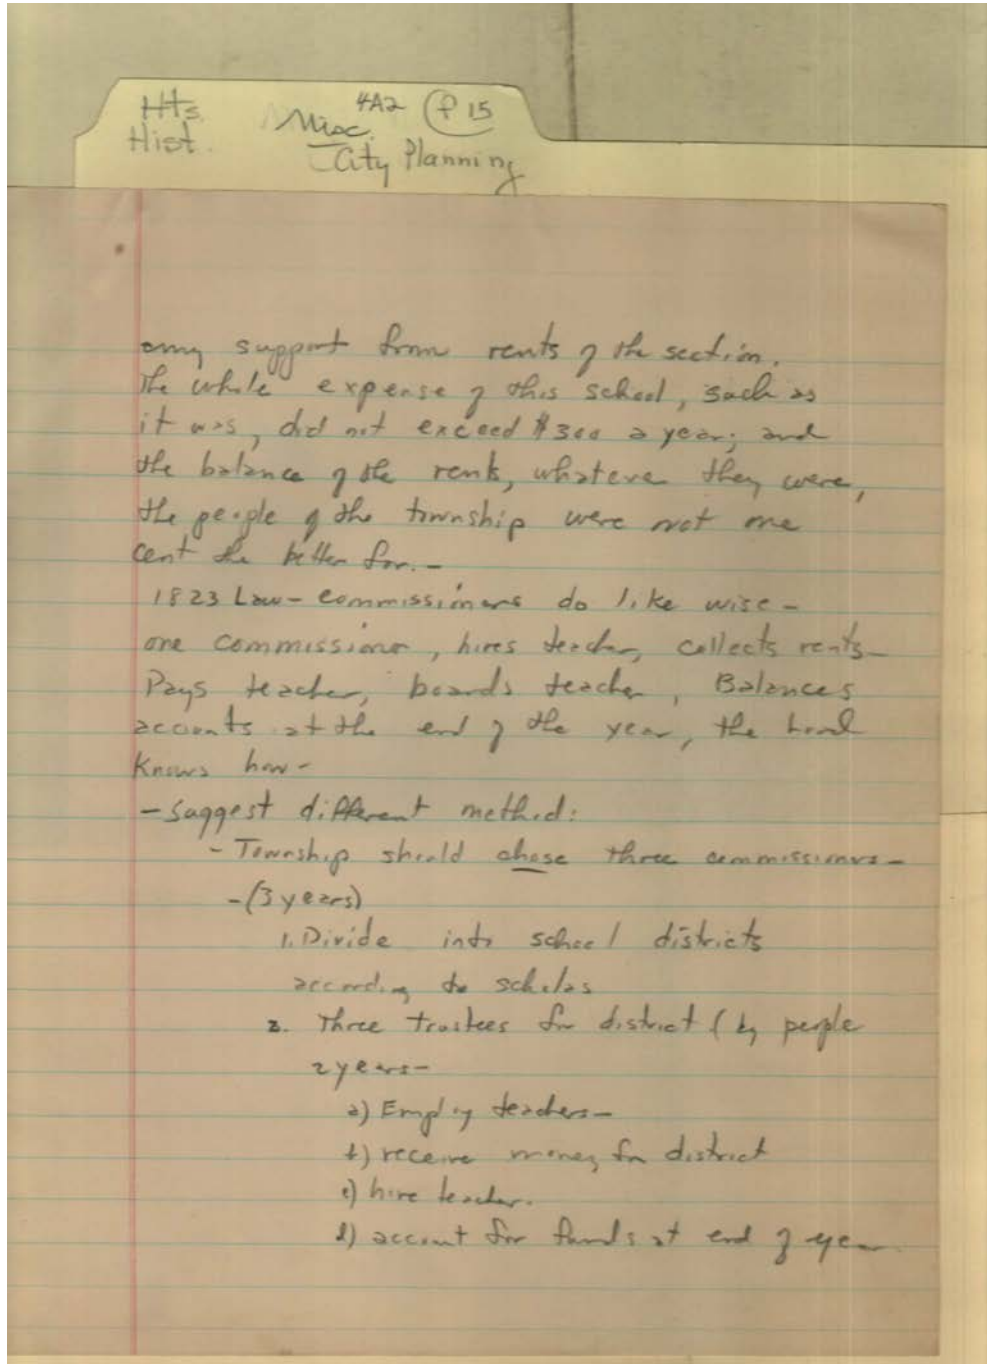 Hts. Hist.
4A2 f 15
Misc.
City Planning
any support from rents of the section.
The whole expense of this school, such as
it was, did not exceed $300 a year; and
the balance of the rents, whatever they were,
the people of the township were not one
cent the better for. -
1823 Law - commissioners do like wise -
one commissioner, hires teacher, collects rents -
Pays teacher, boards teacher, Balances
accounts at the end of the year, the Lord
Knows how -
- Suggest different method:
- Township should chose three commissioners -
- (3 years)
1. Divide into school districts
according to scholars
2. Three trustees for district ( by people
2 years -
a) Employ teachers -
b) receive money for district
c) hire teacher.
d) account for funds at end of year